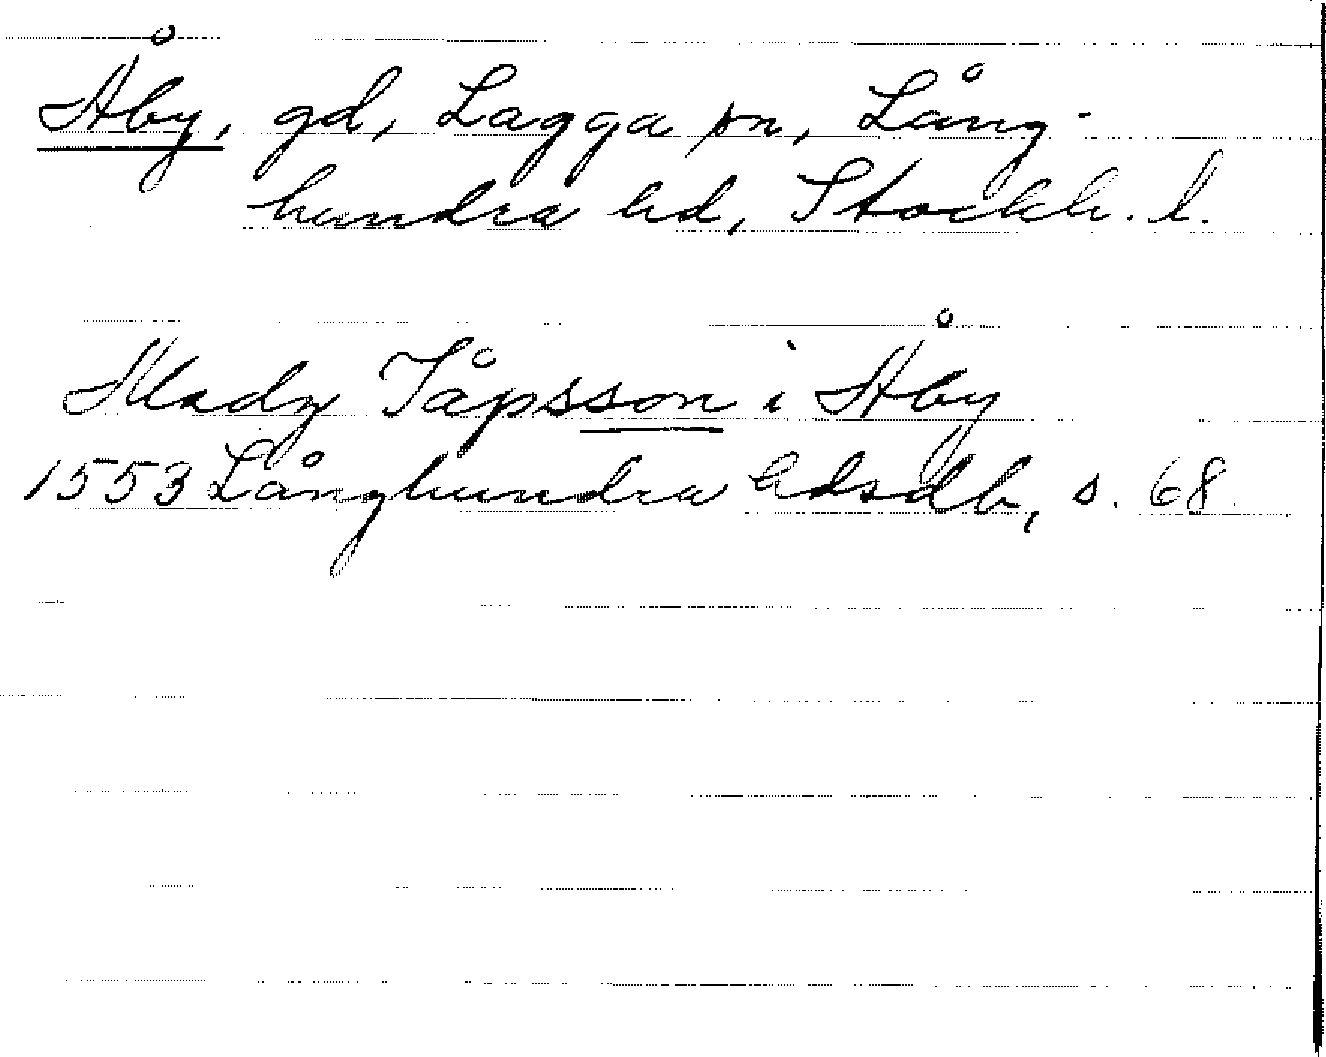 Åby, gd, Lagga sn, Lång-
hundra hd, Stockh. l.
Madz Tåpsson i Åby
1553 Långhundra hdsdb, s. 68.